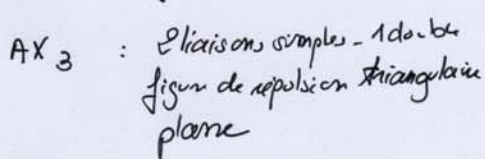 AX3 : 2 liaisons simples - 1 double
figure de répulsion triangulaire
plane